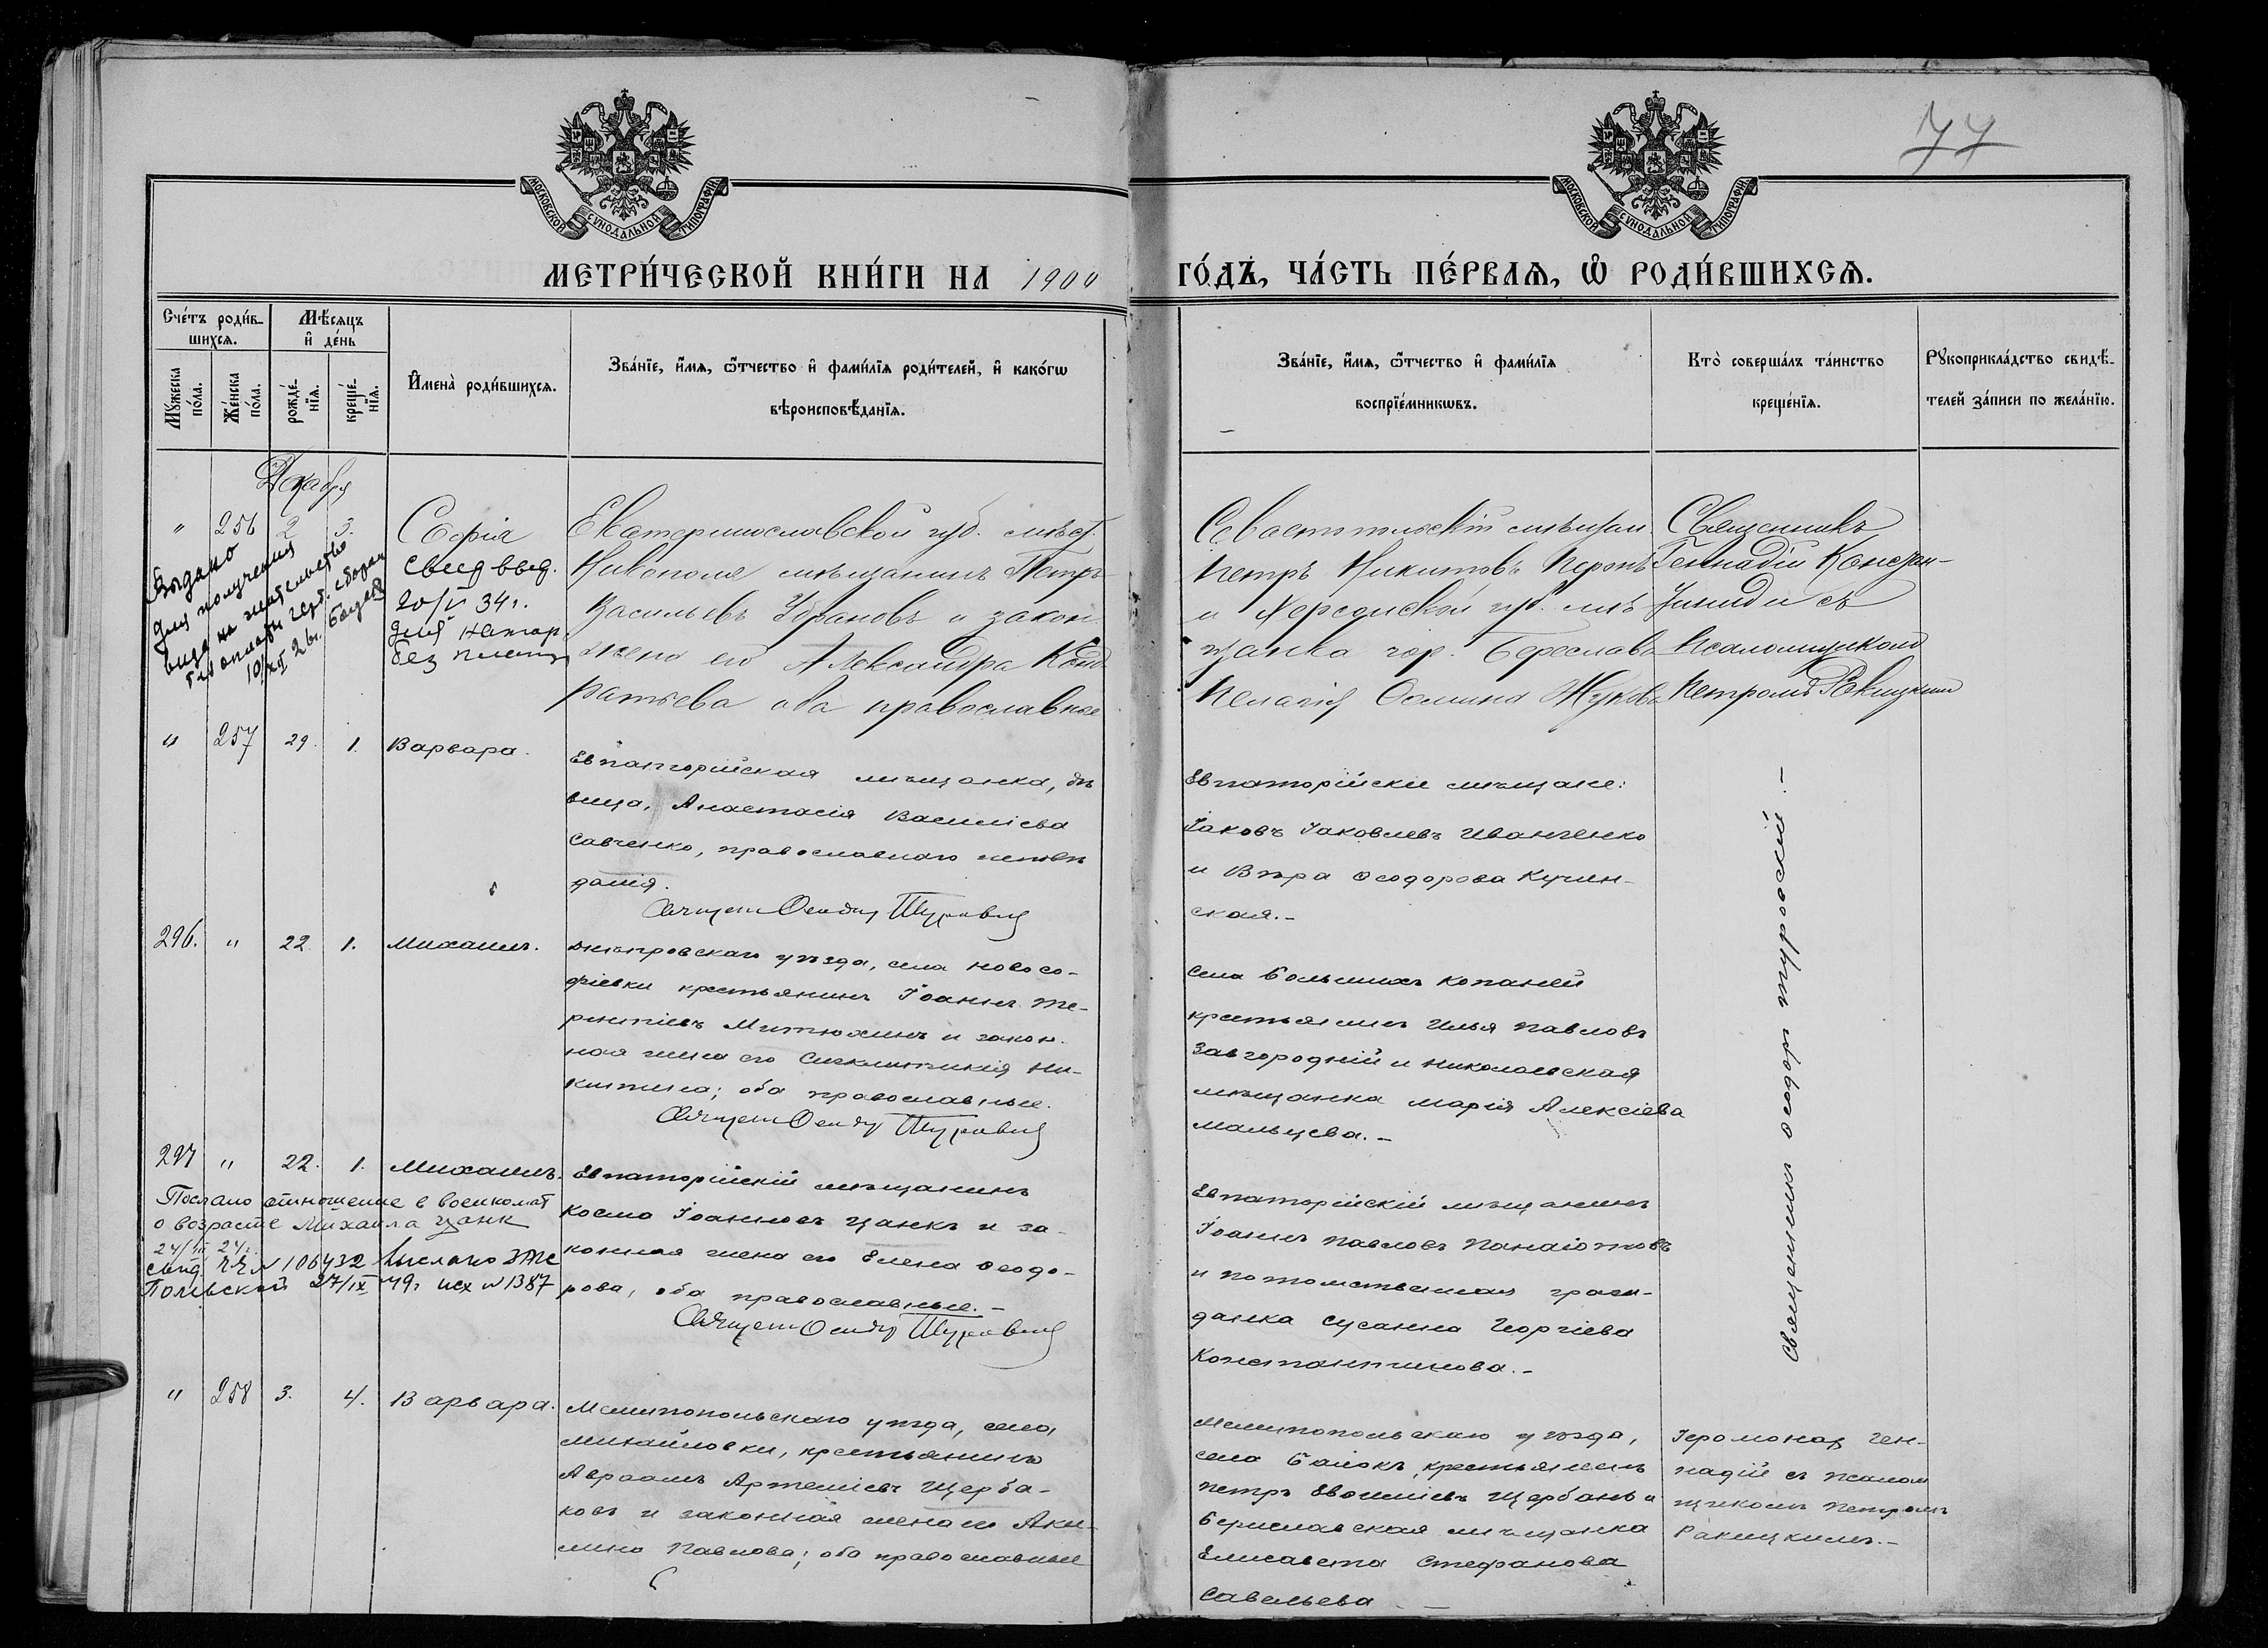 77
МОСКОВСКОЙ СУНОДАЛЬНОЙ ТИПОГРАФІИ
МОСКОВСКОЙ СУНОДАЛЬНОЙ ТИПОГРАФІИ
МЕТРИ́ЧЕСКОЙ КНИ́ГИ НА 1900
ГО́ДЪ, ЧА́СТЬ ПЕ́РВАѦ, Ѽ РОДИ́ВШИХСѦ.
Сче́тъ роди́в-
шихсѧ.
Мѣ́сѧцъ
и҆ де́нь
Мꙋ́жеска
по́ла.
Же́нска
по́ла.
рожде́-
нїѧ.
креще́-
нїѧ.
И҆мена̀ роди́вшихсѧ.
Зва́нїе, и҆́мѧ, ѻ҆́тчество и҆ фами́лїѧ роди́телей, и҆ како́гѡ
вѣроисповѣ́данїѧ.
Зва́нїе, и҆́мѧ, ѻ҆́тчество и҆ фами́лїѧ
воспрїе́мникѡвъ.
Кто̀ соверша́лъ та́инство
креще́нїѧ.
Рꙋкоприкла́дство свидѣ́-
телей за́писи по жела́нїю.
Декабря
" 256 2 3. Софія
Выдано
для получения
вида на жительство
10/XII 26г.
свид выд.
20/V 34г.
для
без
Екатеринославской губ. мѣст.
Никополя мѣщанинъ Петръ
Васильевъ и закон.
жена его Александра Конд
ратьева оба православные
Севастопольскій мѣщан.
Петръ Никитовъ
и Херсонской губ. мѣ
щанка гор. Береслава
Пелагія Жукова
Священникъ
Геннадій
съ
Псаломщикомъ
Петромъ Ракицкимъ
" 257 29. 1. Варвара.
Евпаторійская мѣщанка, дѣ
вица, Анастасія Василіева
Савченко, православнаго исповѣ
данія.
Евпаторійскіе мѣщане:
Іаковъ Іаковлевъ Иванченко
и Вѣра Ѳеодорова Кучин-
ская.-
Священникъ Ѳеодоръ Туровскій.-
296. " 22. 1. Михаилъ.
Днѣпровскаго уѣзда, села Новосо-
фіевки крестьянинъ Іоаннъ Те-
рентіевъ Митюхинъ и закон-
ная жена его Синклитикія Ни-
китина; оба православные.
села Большихъ Копаней
крестьянинъ Илья Павловъ
Завгородній и Николаевская
мѣщанка Марія Алексіева
Мальцева.-
297 " 22. 1. Михаилъ.
Послано отношение в военкомат
о возрасте Михаила Цанк
24/III 24г.
N 106432 Выслано
27/IX 49г исх N 1387
Евпаторійскій мѣщанинъ
Косма Іоанновъ Цанкъ и за-
конная жена его Елена Ѳеодо-
рова, оба православные.-
Евпаторійскій мѣщанинъ
Іоаннъ Павловъ Панаіотовъ
и потомственная граж-
данка Сусанна Георгіева
Константинова.-
" 258 3. 4. Варвара.
Мелитопольскаго уѣзда, села
Михайловки, крестьянинъ
Авраамъ Артеміевъ Щерба-
ковъ и законная жена его Аки-
лина Павлова; оба православные
Мелитопольскаго уѣзда,
села Балокъ, крестьянинъ
Петръ Щербань и
Бериславская мѣщанка
Елисавета Стефанова
Савельева
Іеромонах Ген-
надій съ псалом
щикомъ Петромъ
Ракицкимъ.-